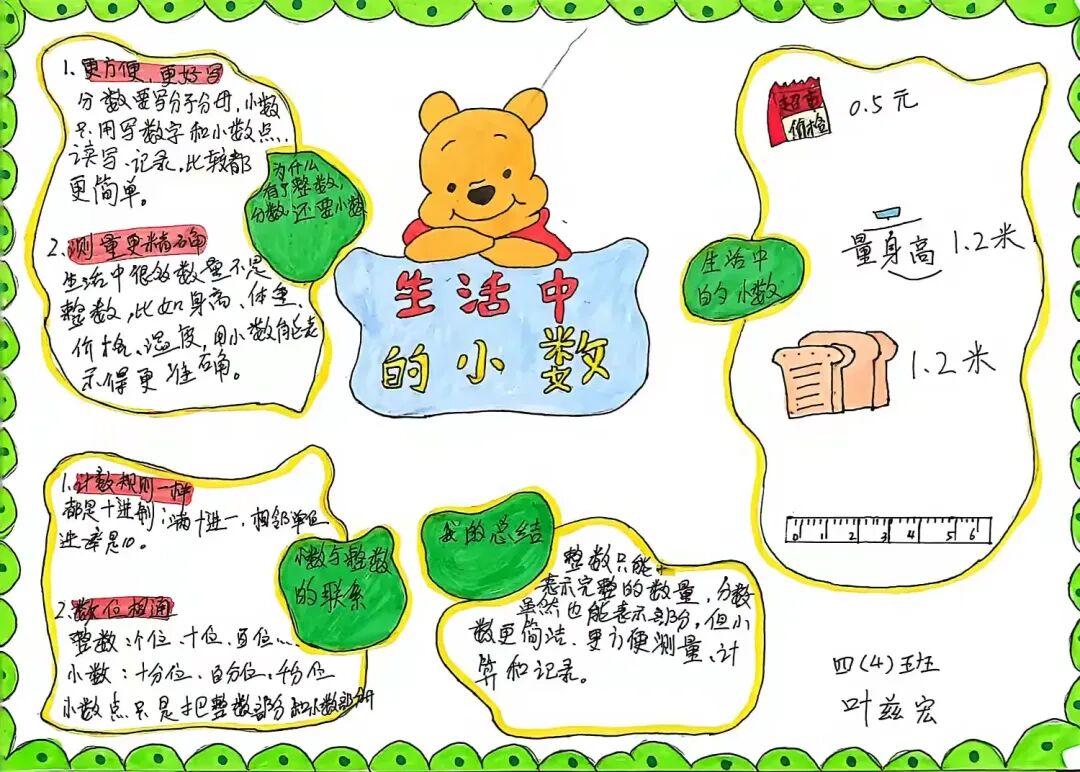 生活中
的小数
1. 更方便,更好写
分数要写分子分母,小数
只用写数字和小数点,
读写、记录,比较都
更简单。
2. 测量更精确
生活中很多数量不是
整数,比如身高、体重、
价格、温度,用小数能表
示得更准确。
为什么
有了整数,
分数,还要小数
超市
价格
0.5元
量身高 1.2米
生活中
的小数
1.2米
0 1 2 3 4 5 6
1. 计数规则一样
都是十进制;满十进一,相邻单位
进率是10。
2. 数位相通
整数:个位、十位、百位...
小数:十分位、百分位、千分位
小数点只是把整数部分和小数部分
小数与整数
的联系
我的总结
整数只能
表示完整的数量,分数
虽然也能表示部分,但小
数更简洁、更方便测量、计
算和记录。
四(4)班
叶兹宏